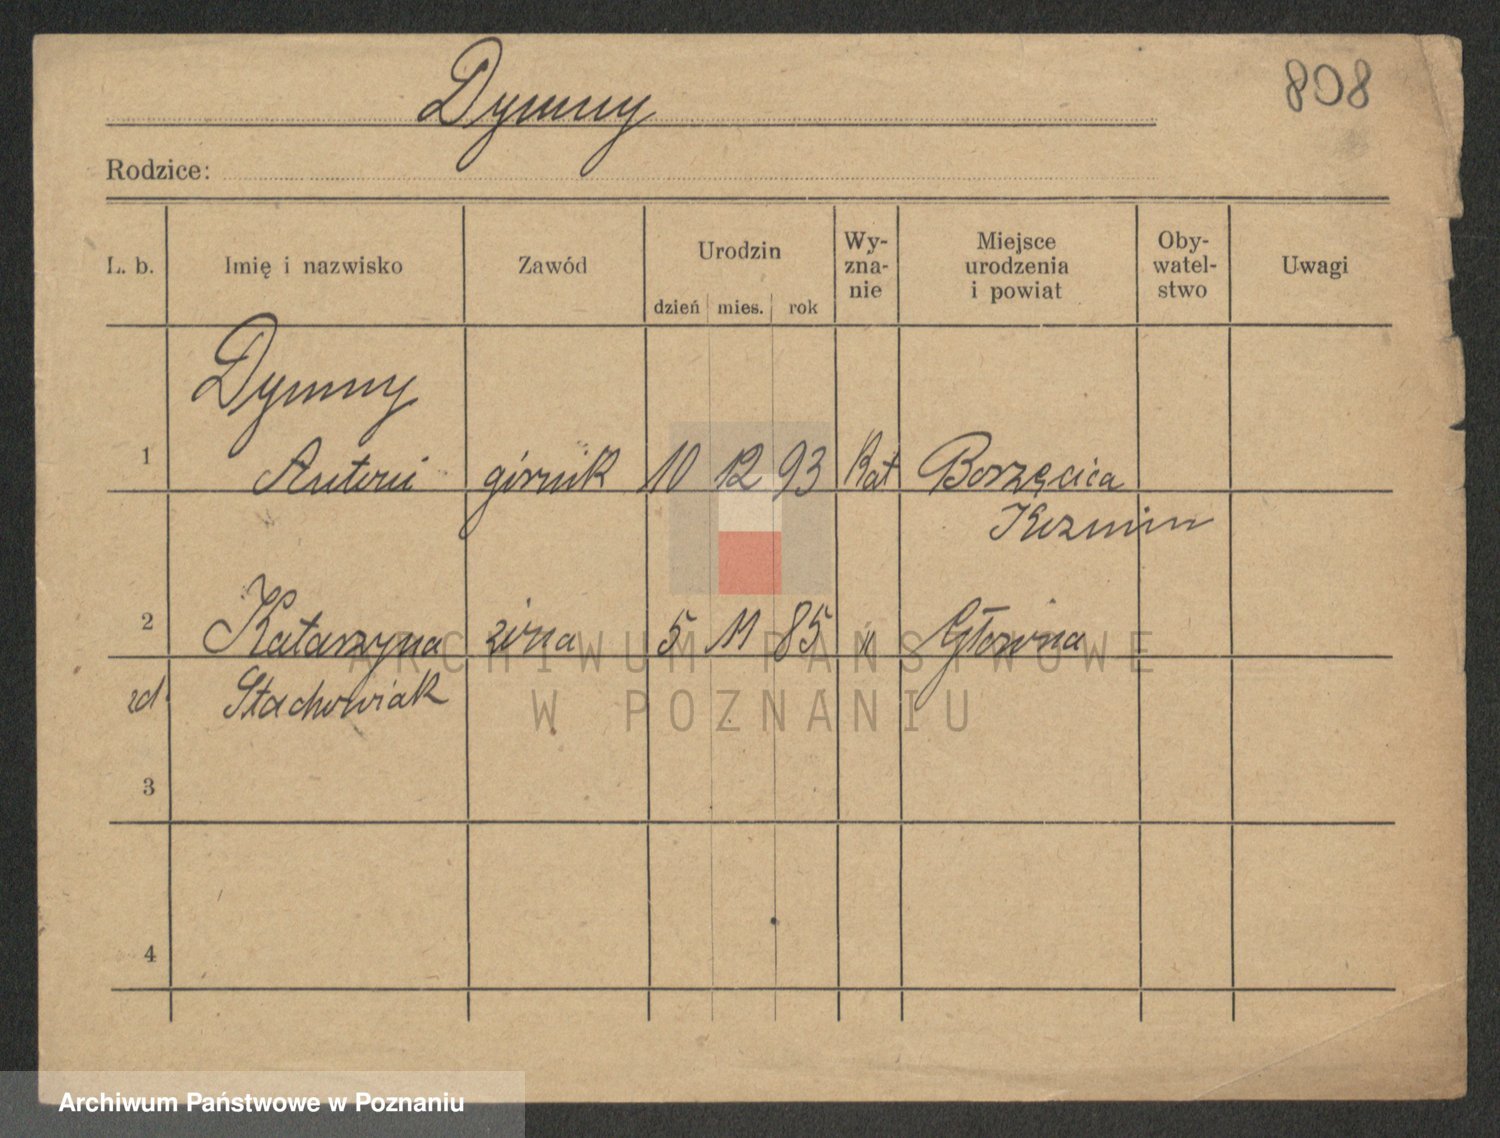 Dymny
808
Rodzice:
L. b.
Imię i nazwisko
Zawód
Urodzin
dzień mies. rok
Wy-
zna-
nie
Miejsce
urodzenia
i powiat
Oby-
watel-
stwo
Uwagi
Dymny
1 Antoni górnik 10 12 93 Kat Borzęcica
Kozmin
2 Katarzyna żona 5 11 85 " Głowna
zd Stachowiak
3
4
ARCHIWUM PAŃSTWOWE
W POZNANIU
Archiwum Państwowe w Poznaniu